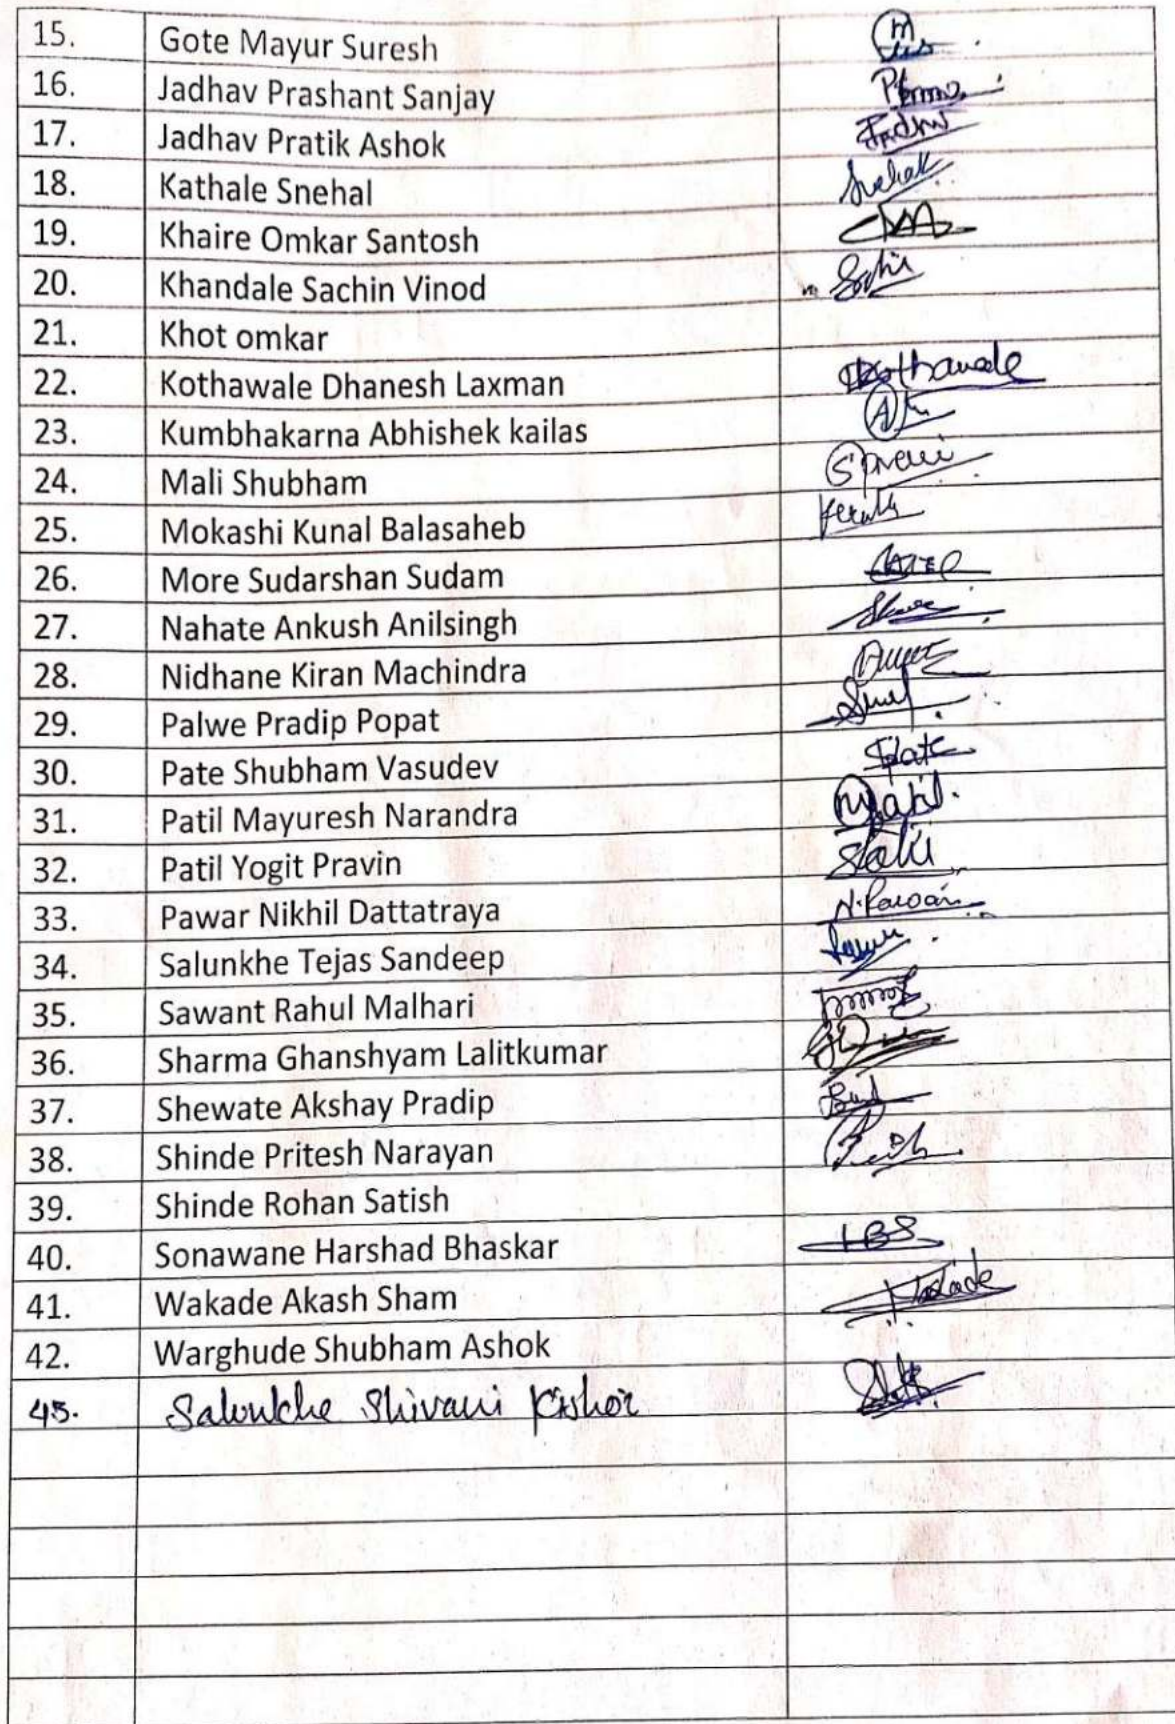 15. Gote Mayur Suresh
16. Jadhav Prashant Sanjay
17. Jadhav Pratik Ashok
18. Kathale Snehal Snehal
19. Khaire Omkar Santosh
20. Khandale Sachin Vinod
21. Khot omkar
22. Kothawale Dhanesh Laxman
23. Kumbhakarna Abhishek kailas
24. Mali Shubham
25. Mokashi Kunal Balasaheb
26. More Sudarshan Sudam
27. Nahate Ankush Anilsingh
28. Nidhane Kiran Machindra
29. Palwe Pradip Popat
30. Pate Shubham Vasudev
31. Patil Mayuresh Narandra
32. Patil Yogit Pravin
33. Pawar Nikhil Dattatraya N.Pawar
34. Salunkhe Tejas Sandeep
35. Sawant Rahul Malhari
36. Sharma Ghanshyam Lalitkumar
37. Shewate Akshay Pradip
38. Shinde Pritesh Narayan
39. Shinde Rohan Satish
40. Sonawane Harshad Bhaskar HBS
41. Wakade Akash Sham
42. Warghude Shubham Ashok
43. Salunkhe Shivani Kishor